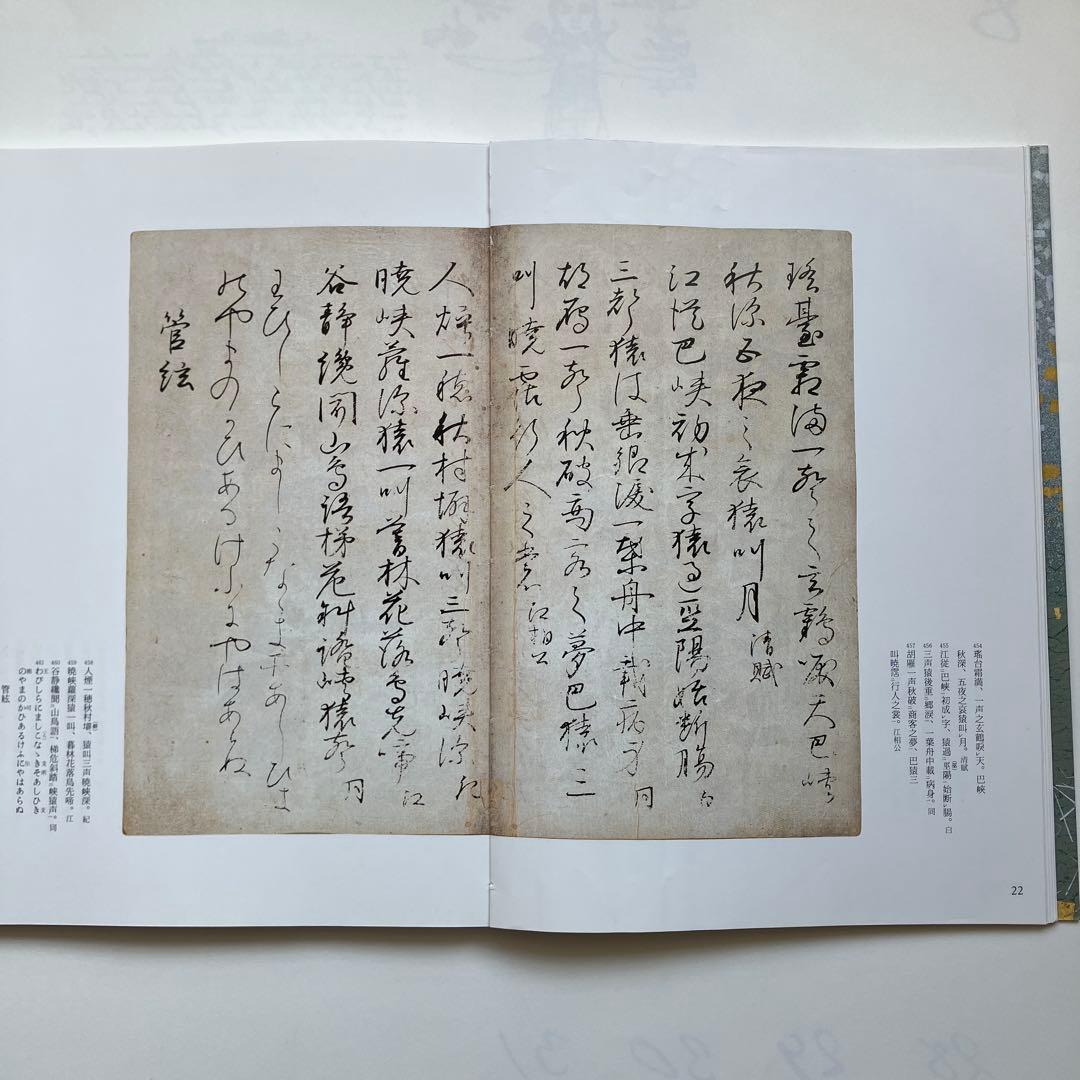 瑤臺霜滿一聲之玄鶴唳天巴峽
秋深五夜之哀猿叫月 清賦
江從巴峽初成字猿過巫陽始断腸 白
三聲猿後垂郷涙一葉舟中載病身 同
胡雁一聲秋破商客之夢巴猿三
叫曉霑行人之裳 江相公
人煙一穂秋村僻猿叫三聲曉峽深 紀
曉峽蘿深猿一叫暮林花落鳥先啼 江
谷静纔聞山鳥語梯危斜踏峡猿聲 同
わひしらにましこなゝきそあしひき
のやまのかひあるけふにやはあらぬ
管絃
454 瑤台霜満、一声之玄鶴唳天。巴峡
秋深、五夜之哀猿叫月。清賦
455 江従巴峡初成字、猿過巫陽始断腸。白
456 三声猿後垂郷涙、一葉舟中載病身。同
457 胡雁一声秋破商客之夢、巴猿三
叫暁霑行人之裳。江相公
458 人煙一穂秋村僻、猿叫三声暁峡深。紀
459 暁峡蘿深猿一叫、暮林花落鳥先啼。江
460 谷静纔聞山鳥語、梯危斜踏峡猿声。同
461 わびしらにましこなゝきそあしひき
のやまのかひあるけふにやはあらぬ
管絃
22
29 30 31